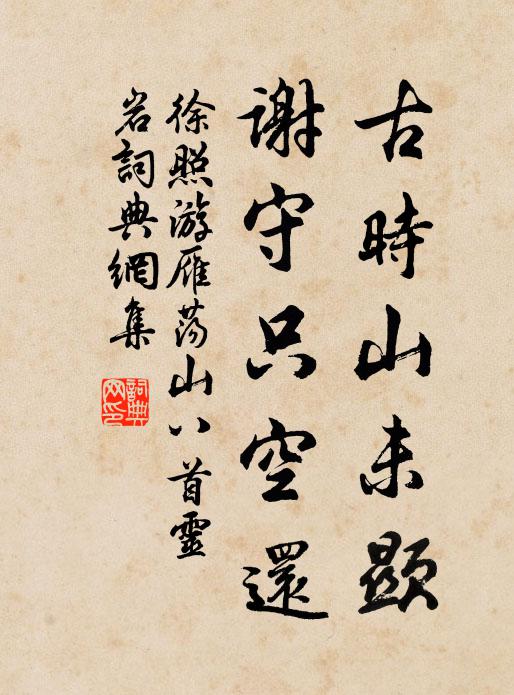 古時山未顯
謝守只空還
徐照游雁蕩山八首靈
岩詞典網集
詞典網印